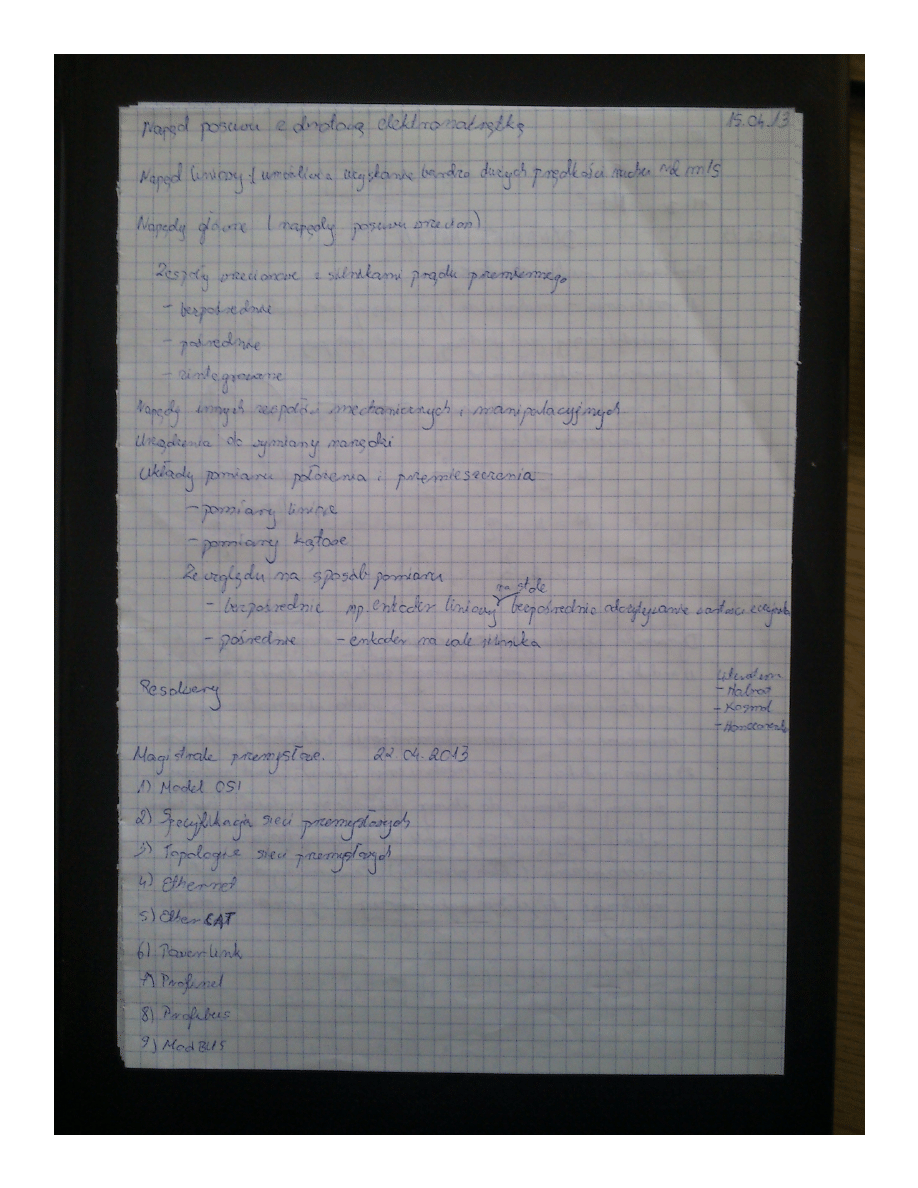 Napęd posuwu z drążoną elektronakrętką 15.04.13
Napęd liniowy: umożliwia uzyskanie bardzo dużych prędkości ruchu m/s
Napędy główne (napędy posuwu wrzecion)
Zespoły wrzecionowe z silnikami prądu przemiennego
- bezpośrednie
- pośrednie
- zintegrowane
Napędy innych zespołów mechanicznych i manipulacyjnych
Urządzenia do wymiany narzędzi
Układy pomiaru położenia i przemieszczenia
- pomiary liniowe
- pomiary kątowe
Ze względu na sposób pomiaru
na stole
- bezpośrednie np. enkoder liniowy bezpośrednie odczytywanie wartości
- pośrednie - enkoder na wale silnika
Resolwery
- Kosmol
- Honczarenko
Magistrale przemysłowe. 22.04.2013
1) Model OSI
2) Specyfikacja sieci przemysłowych
3) Topologie sieci przemysłowych
4) Ethernet
5) EtherCAT
6) PowerLink
7) Profinet
8) Profibus
9) ModBUS